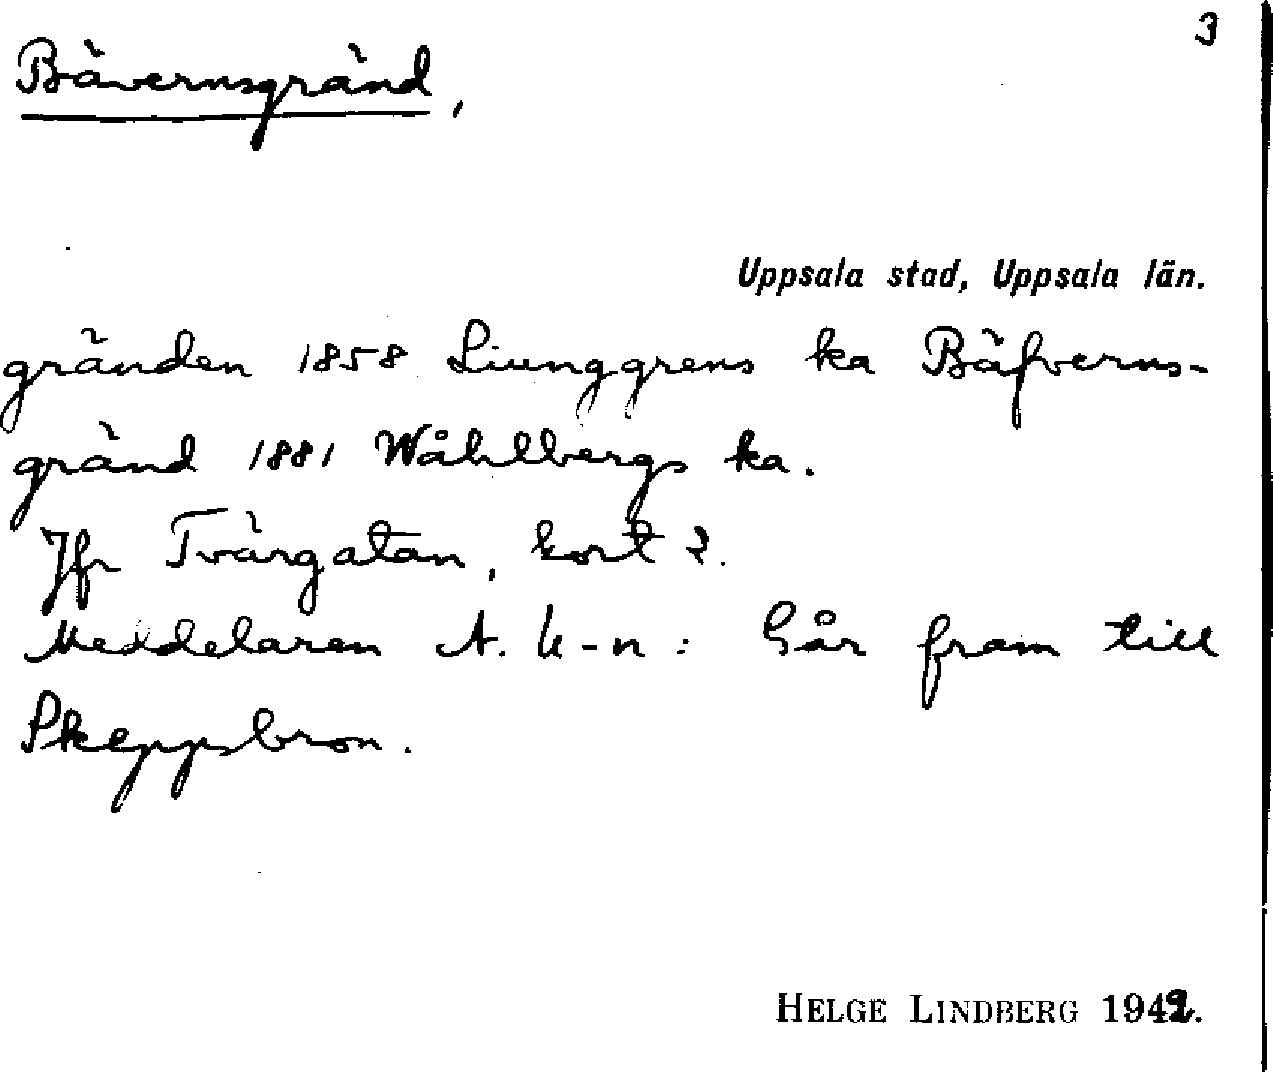 3
Bävernsgränd,
Uppsala stad, Uppsala län.
gränden 1858 Liunggrens ka Bäfverns-
gränd 1881 Wåhlbergs ka.
Jfr Tvärgatan, kort 2.
Meddelaren A. U-n: Går fram till
Skeppsbron.
HELGE LINDBERG 1942.